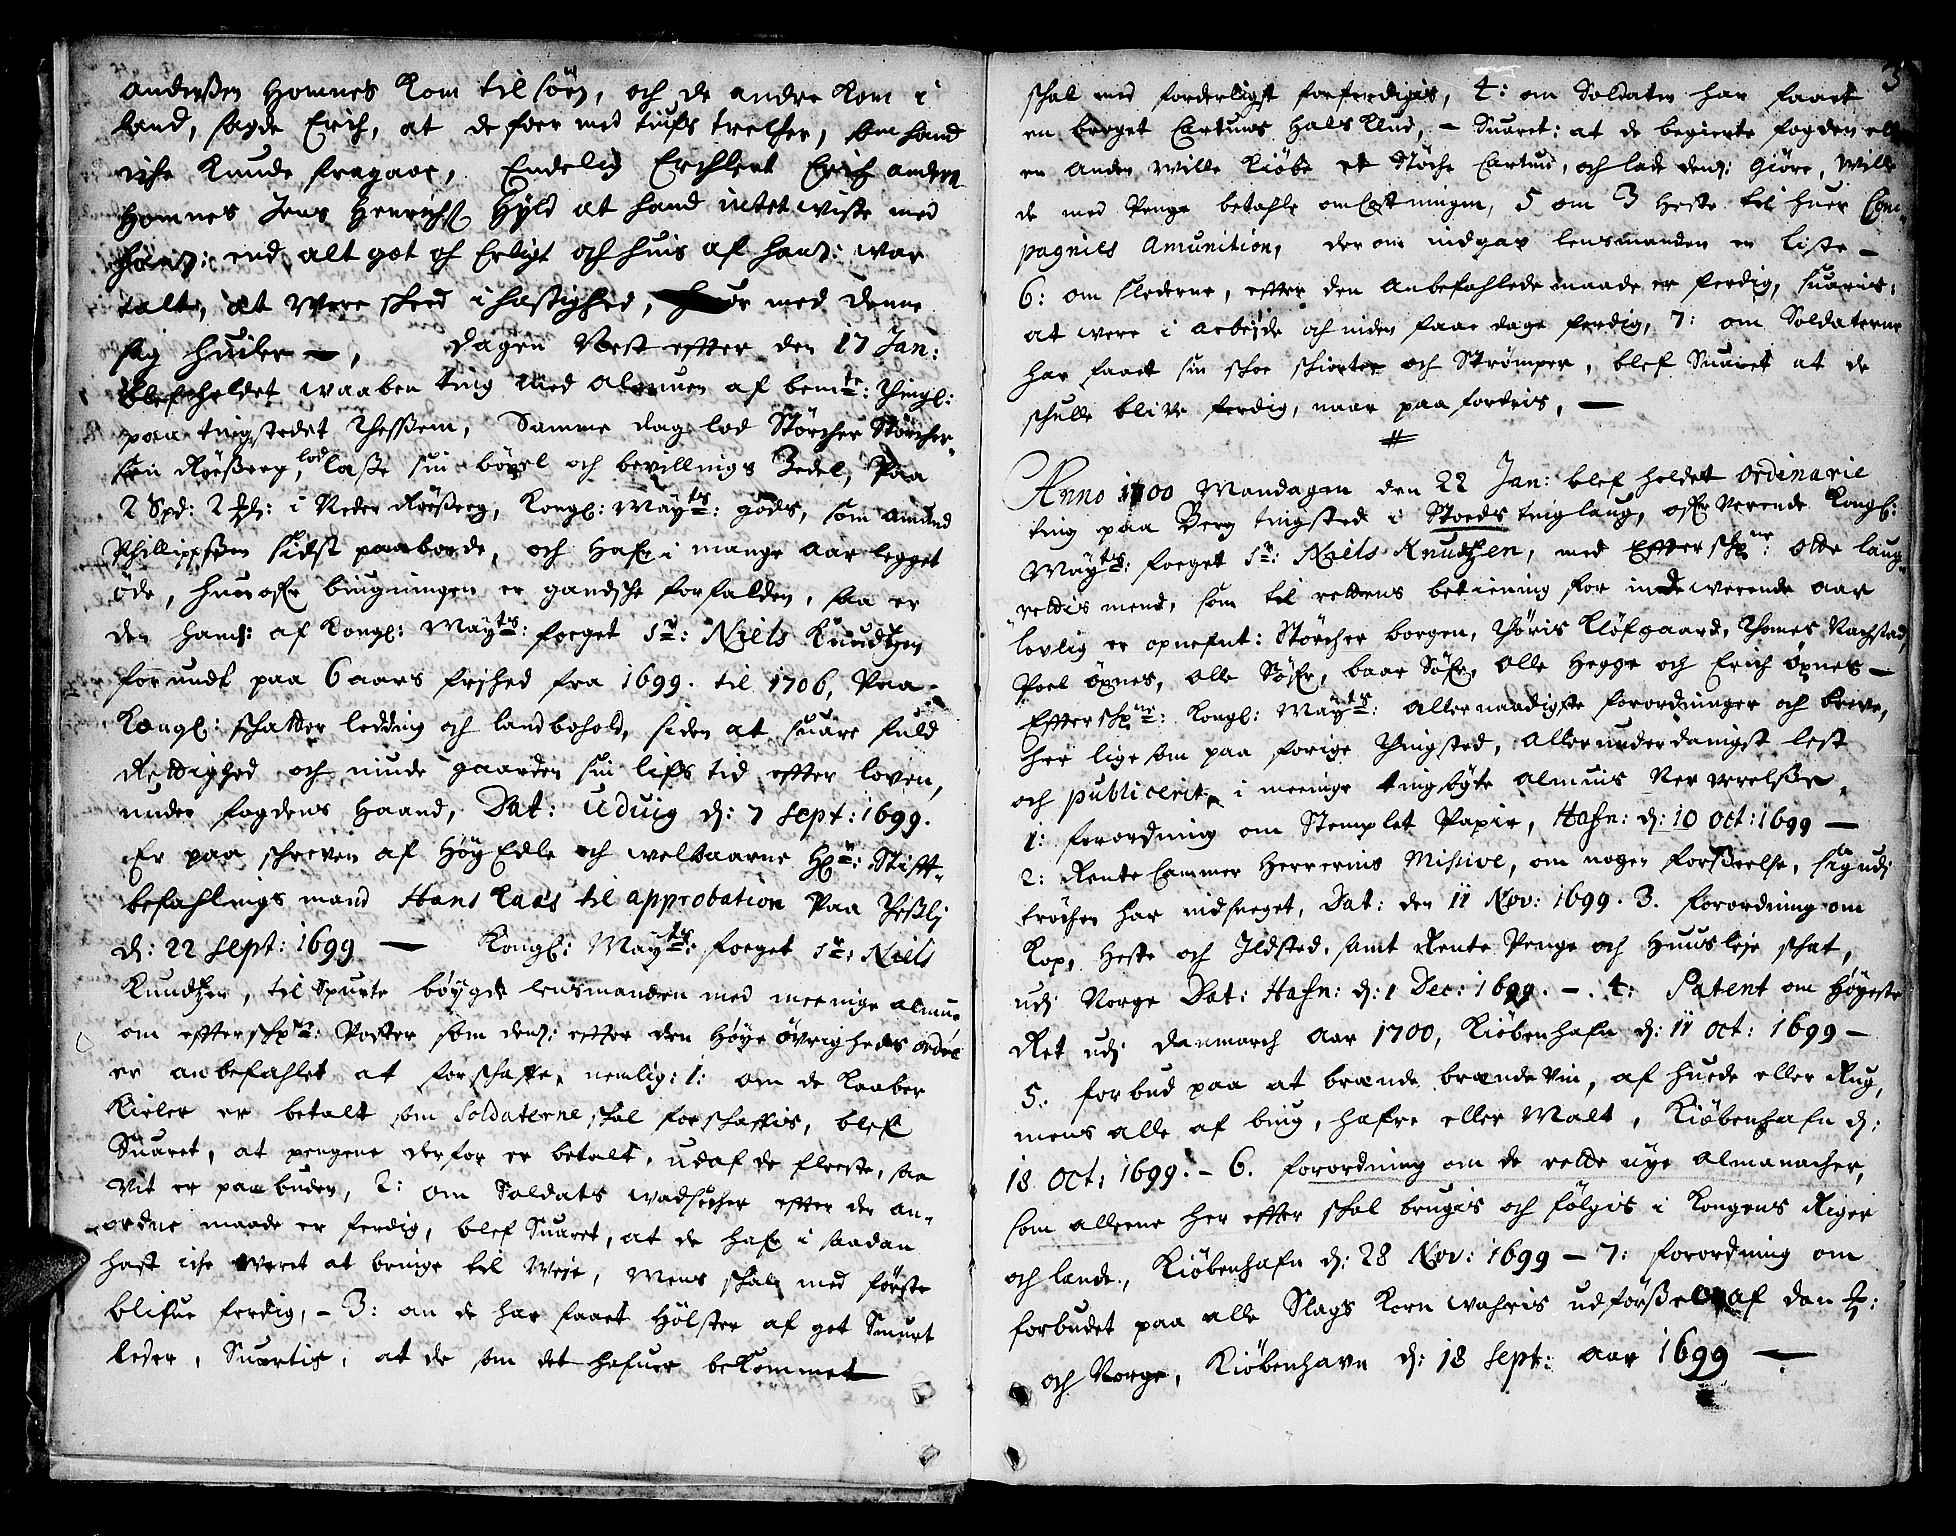 anderßen Homnes kom til siøen, och de andre kom i
land, sagde Erich, at de foer med tiufs trelser, som hand
iche kunde fragaae, Endelig Erchlert Erich anders
Homnes Jens Henrichs Hyld at hand intet wiste med
hans: end alt got oc Erligt och huis af hans: war
talt, at were skeed i hastighed, huor med denne
sag huiler —, Dagen Nest effter den 17 Jan:
blef holdet waaben ting med almuen af bemte: Thingl:
paa tingstedet Theßem, Samme dag lod Störcher Störcher-
sön Röeßeg, lod laße sin böxel och bevillnigs Zedel, Paa
2 Spd: 2 i Neder Röeßeg, Kongl: Mayts: gods, som amund
Phillipßen sidst paaboede, och Hafr i mange aar legget
öde, huorofr biugningen er gandsche forfalden, saa er
den hans: af Kongl: Mayts: foeget Sr: Niels Knudtzen
forundt paa 6 aars frihed fra 1699. til 1706, Paa
Kongl: schatter ledding och landbohold, siden at suare fuld
Rettighed och niude gaarden sin lifs tid effter loven,
under fogdens Haand, Dat: Uduig d: 7 Sept: 1699.
Er paa schreven af Höy Edle och welbaarne Hr: Stifft-
befahlings mand Hans Kaas til approbation Paa
d: 22 Sept: 1699 — Kongl: Mayts: foeget Sr: Niels
Knudtzen, til Spurte böygde lensmanden med meenige almue
om efftersch: Poster som dend: effter den Höye övrigheds ordre
er anbefahlet at forschaffe, nemlig: 1: om de Kaaber
Kioler er betalt som Soldaterne skal forschaffis, blef
Suaret, at pengene derfor er betalt, udaf de fleeste, saa
vit er paabuden, 2: om Soldats wadsecher effter den an-
ordne maade er ferdig, blef Suaret, at de hafr i saadan
hast iche weret at bringe til Weye, Mens skal med förste
blifue ferdig, — 3: om de har faaet Hölster af got Smurt
leder, Suartis, at de som det hafuer bekommet
3
schal med forderligst forferdigis, 4: om Soldaten har faaet
en broget Cartuns Hals klud, — Suaret: at de begierte fogden eller
en anden wille kiöbe et Stöche Cartun, och lade dend: giöre, wille
de med Penge betahle omkostningen, 5 om 3 Heste til huer Com-
pagnies Amunition, der om indgav lensmanden en Liste —
6: om slederne, effter den anbefahlede maade er ferdig, suaris:
at were i arbejde och inden faae dage ferdig, 7: om Soldaterne
har faaet sin skoe schiorter och Strömper, blef Suaret at de
schulle blive ferdig, naar paa fordris, —
Anno 1700 Mandagen den 22 Jan: blef holdet ordinarie
ting paa Berg tingsted i Stoeds tinglaug, ofr verende Kongl:
Mayts: foeget Sr: Niels Knudtzen, med Effterschne: otte laug-
rettis mend, som til rettens betiening for inde werende aar
lovlig er opnefnt: Störcher borgen, Thöris Klöfgaard, Thomes Rachstad,
Poel öxnes, olle Söfr, baar Söfr, olle Hegge och Erich öxnes —
Efftersch: Kongl: Mayts: allernaadigste forordninger och breve,
her lige som paa forige Thingsted, allerunderdanigst lest
och publicerit, i menige tingsögte almuis Nerverelße,
1: forordning om Stemplet Papir, Hafn: d: 10 Oct: 1699 —
2: Rente Cammer Herrernis Misive, om nogen forßeelse, sig udi
tröchen har indsneget, Dat: den 11 Nov: 1699. 3. forordning om
Kop, Heste och Ildsted, samt Rente Penge och Huusleje schat,
udi Norge Dat: Hafn: d: 1 Dec: 1699. — 4: Patent om Höyeste
Ret udi Danmarch aar 1700, Kiöbenhafn d: 11 Oct: 1699 —
5: forbud paa at brænde brændevin, af huede eller Rug,
mens alle af biug, hafre eller Malt, Kiöbenhafn d:
18 Oct: 1699. — 6. forordning om de rette nye almanacher,
som alleene her effter skal brugis och fölgis i Kongens Riger
och lande, Kiöbenhafn d: 28 Nov: 1699 — 7: forordning om
forbudet paa alle Slags Korn wahris udförßel af Dan:
och Norge, Kiöbenhavn d: 18 Sept: aar 1699 —